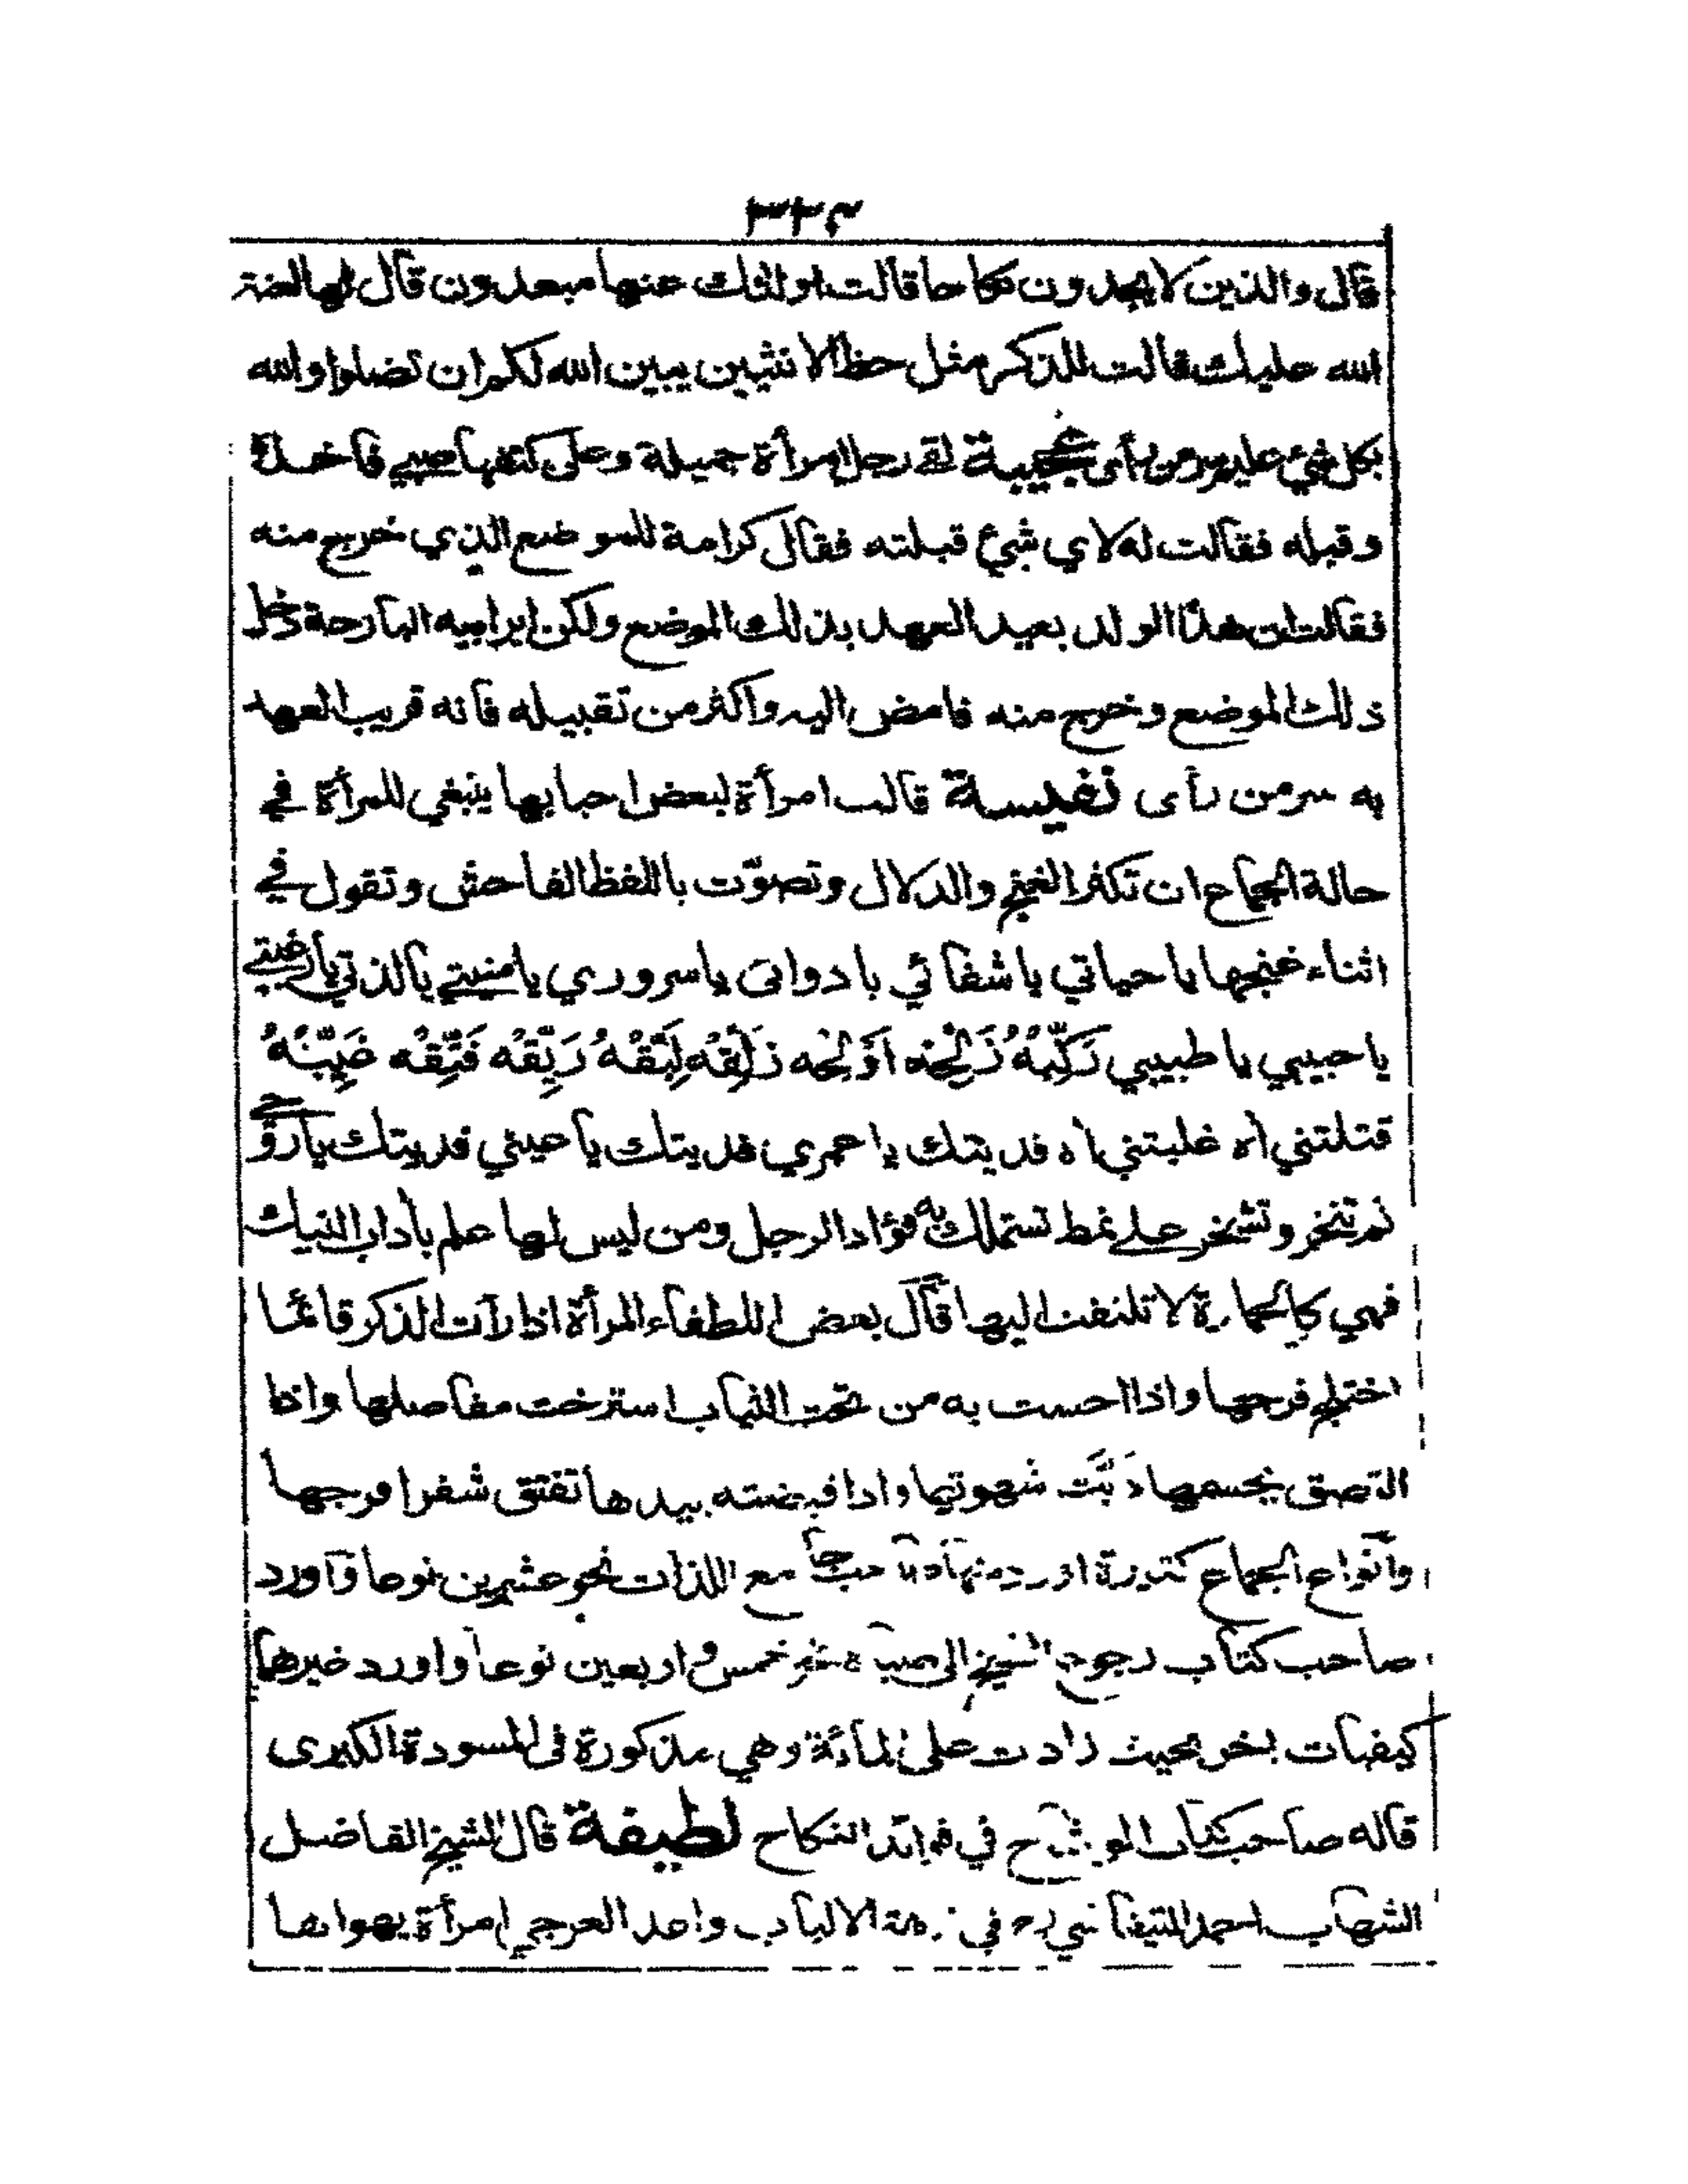 ٣٣٤
قال والذين لا يجدون نكاحا قالت اولئك عنها مبعدون قال لها لعنة
الله عليك قالت للذكر مثل حظ الانثيين يبين الله لكم ان تضلوا والله
بكل شيء عليم من رأى عجيبة لقي رجل امرأة جميلة وعلى كتفها صبي فاخذه
وقبله فقالت له لاي شيء قبلته فقال كرامة للموضع الذي خرج منه
فقالت ان هذا الولد بعيد العهد بذلك الموضع ولكن اير ابيه البارحة دخل
ذلك الموضع وخرج منه فامض اليه واكثر من تقبيله فانه قريب العهد
به سر من رأى نفيسة قالت امرأة لبعض احبابها ينبغي للمرأة في
حالة الجماع ان تكثر الغنج والدلال وتصوّت باللفظ الفاحش وتقول في
اثناء غنجها يا حياتي يا شفائي يا دوائي يا سروري يا منيتي يا لذتي يا رغبتي
يا حبيبي يا طبيبي رَكِّبْهُ اَوْلِجْه زَلِّقْه لِبَّقْهُ رَيِّقْه فَتِّقْه
قتلتني اه غلبتني اه فديتك يا عمري فديتك يا عيني فديتك يا روحي
ثم تنخر وتشخر على نمط تستملك به فؤاد الرجل ومن ليس لها علم بآداب النيك
فهي كالحمارة لا تلتفت اليها قال بعض اللطفاء المرأة اذا رآت الذكر قائما
اختلج فرجها واذا احست به من تحت الثياب استرخت مفاصلها واذا
التصق بجسمها دَبَّت شهوتها واذا قبضته بيدها تفتق شفرا فرجها
وانواع الجماع كثيرة اورد منها صاحب جامع اللذات نحو عشرين نوعا واورد
صاحب كتاب رجوع الشيخ الى صباه نحو خمس واربعين نوعا واورد غيرها
كيفيات اخر بحيث زادت على المائة وهي مذكورة في المسودة الكبرى
قاله صاحب كتاب الموشح في فوائد النكاح لطيفة قال الشيخ الفاضل
الشهاب احمد التيفاشي رح في نزهة الالباب واعد العرجي امرأة يهواها